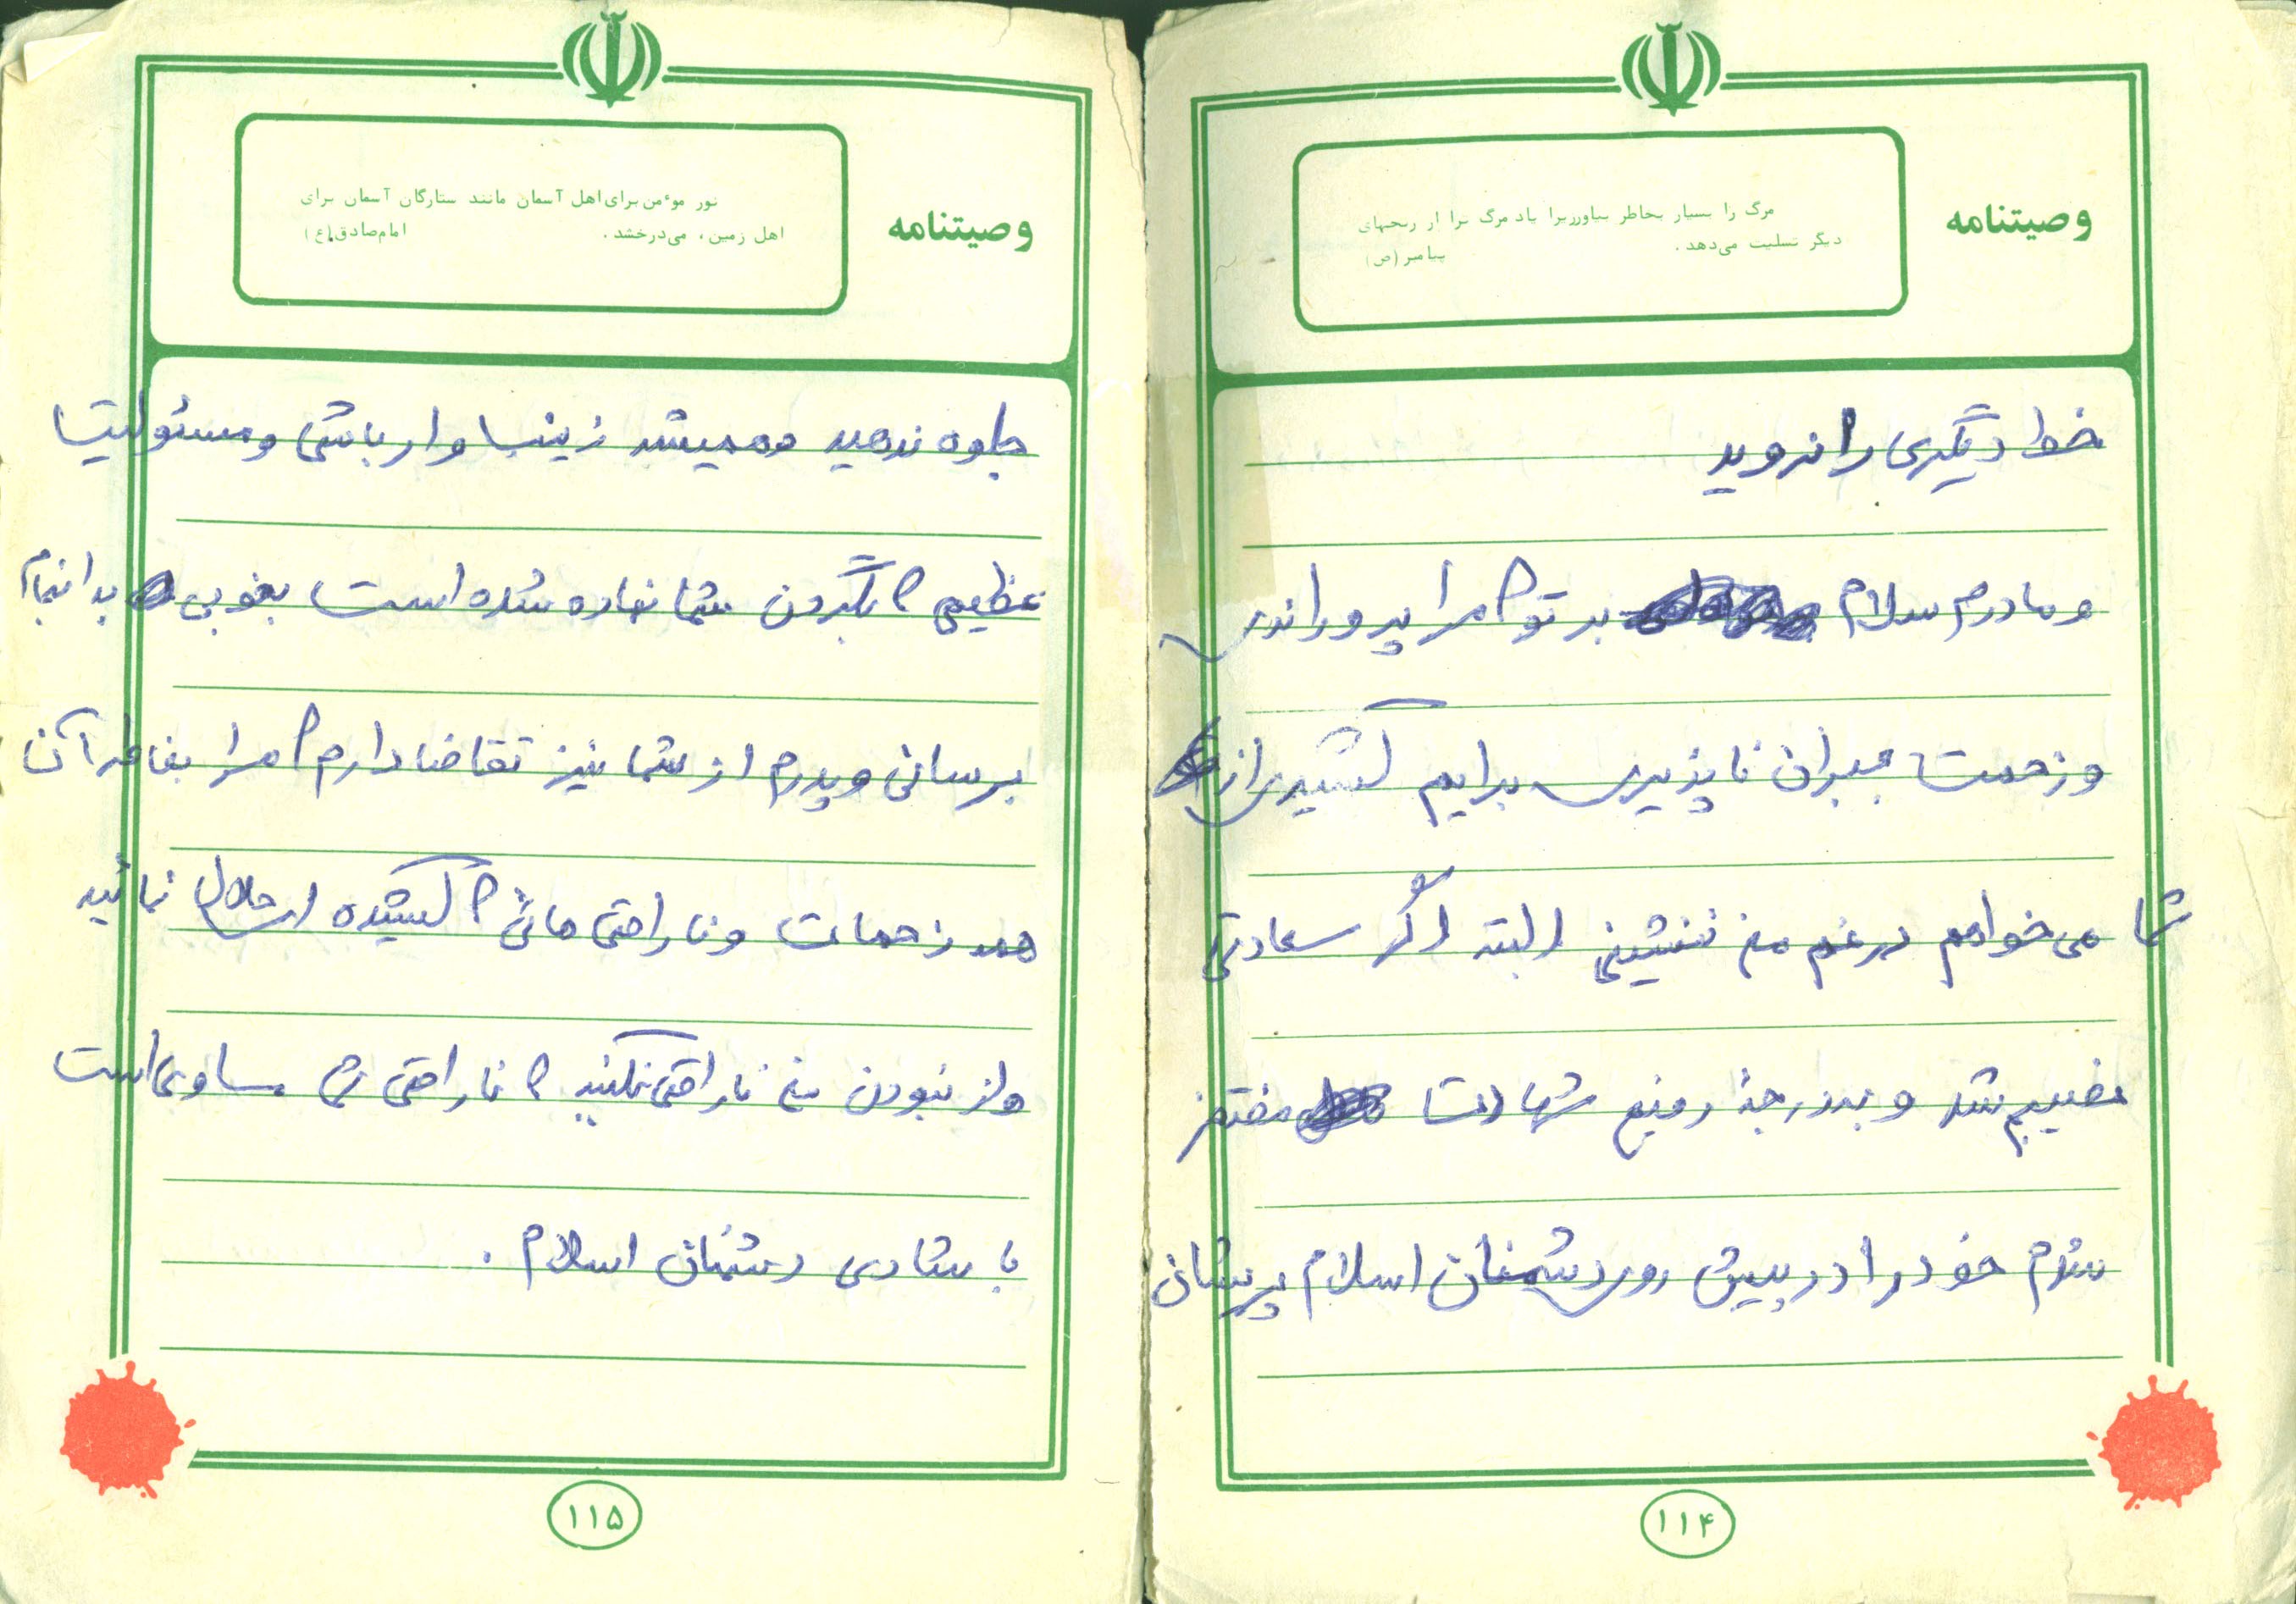 وصیتنامه
مرگ را بسیار بخاطر بیاور زیرا یاد مرگ ترا از رنجهای
دیگر تسلیت می‌دهد.
پیامبر (ص)
خط دیگری را نروید
و مادرم سلام بر تو که مرا پروراندی
و زحمت جبران ناپذیری برایم کشیدی از
شما می‌خواهم در غم من ننشینی البته اگر سعادتی
نصیبم شد و به درجه رفیع شهادت مفتخر
شدم خود را در پیش روی دشمنان اسلام پریشان
۱۱۴
وصیتنامه
نور موءمن برای اهل آسمان مانند ستارگان آسمان برای
اهل زمین، می‌درخشد.
امام صادق (ع)
جلوه ندهید و همیشه زینب وار باشی و مسئولیت
عظیمی که بگردن شما نهاده شده است بخوبی به انجام
برسانی و پدرم از شما نیز تقاضا دارم که مرا بخاطر آن
همه زحمات و ناراحتی هائی که کشیده اید حلال نمائید
و از نبودن من ناراحتی نکنید که ناراحتی شما مساوی است
با شادی دشمنان اسلام.
۱۱۵